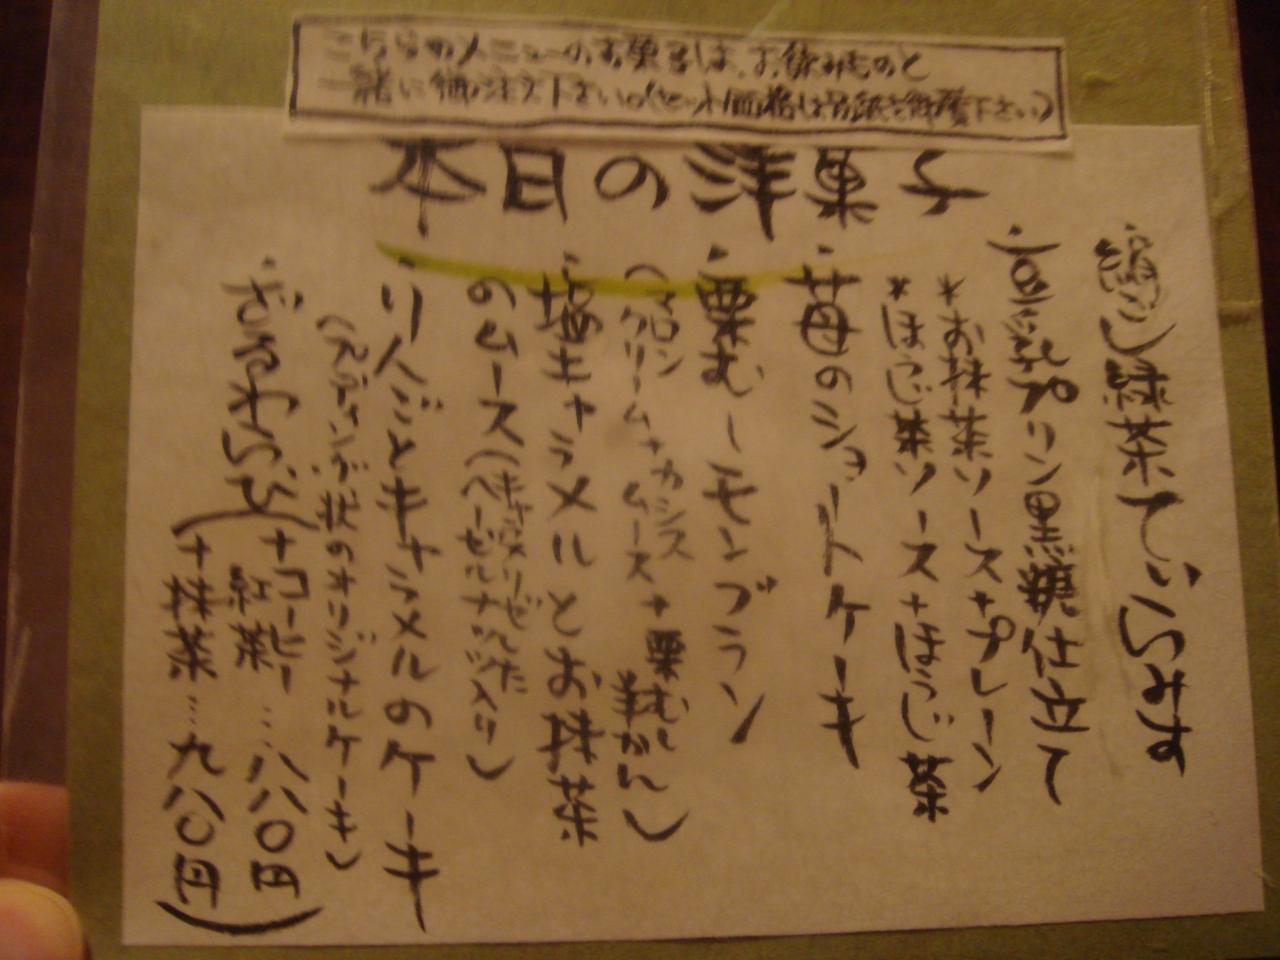 こちらのメニューのお菓子は、お飲みものと
一緒に御注文下さい。(セット価格は別紙を御覧下さい)
本日の洋菓子
緑茶てぃらみす
・豆乳プリン黒糖仕立て
*お抹茶ソース+プレーン
*ほうじ茶ソース+ほうじ茶
・苺のショートケーキ
・栗むしモンブラン
(マロンクリーム+カシスムース+栗むし羊かん)
・塩キャラメルとお抹茶
のムース(キャラメリゼした
ヘーゼルナッツ入り)
・りんごとキャラメルのケーキ
(スティック状のオリジナルケーキ)
+コーヒー
紅茶…八八〇円
+抹茶…九八〇円